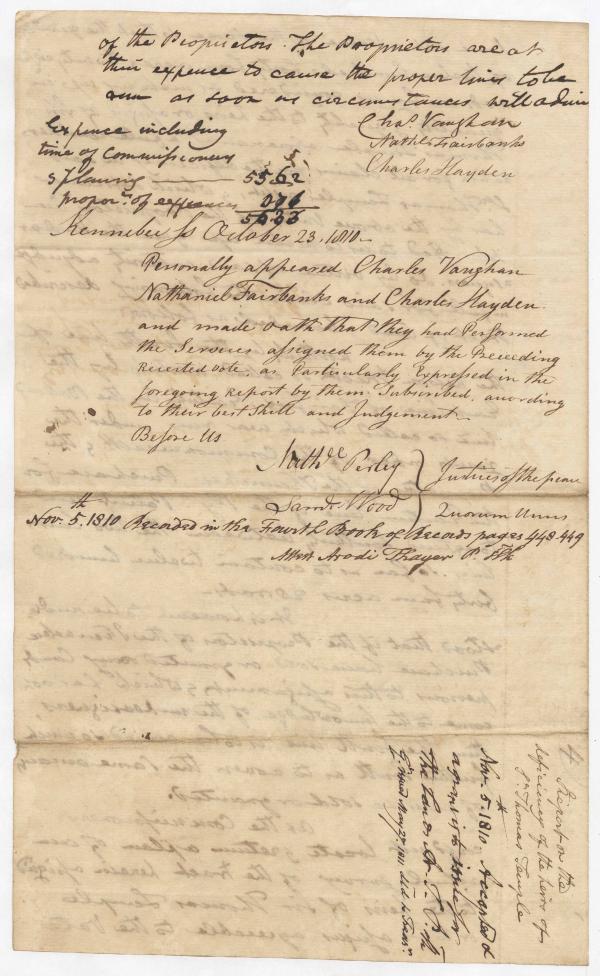 of the Proprietors. The Proprietors are at
their expence to cause the proper lines to be
run as soon as circumstances will admit
Chas. Vaughan
Nathel Fairbanks
Charles Hayden
Expence including
time of Commissioners
& planing — 5562
propor. of expences 076
5633
Kennebec Ss October 23. 1810.
Personally appeared Charles Vaughan
Nathaniel Fairbanks and Charles Hayden
and made oath that they had Performed
the Services assigned them by the Preceeding
Recited vote, as Particularly Expressed in the
foregoing Report by them Subscribed, according
to their best Skill and Judgement
Before Us
Nathl Perley
Justices of the peace
Saml Wood
Quorum Unus
Nov. 5th. 1810 Recorded in the Fourth Book of Records pages 448-449
Attest Arodi Thayer P. Clk
4 Report on the
deficiency of the heirs of
Sr. Thomas Temple
Nov. 5th 1810. Accepted &
a grant is to issue for
The Lands A. T. P. Clk
May 2d 1811